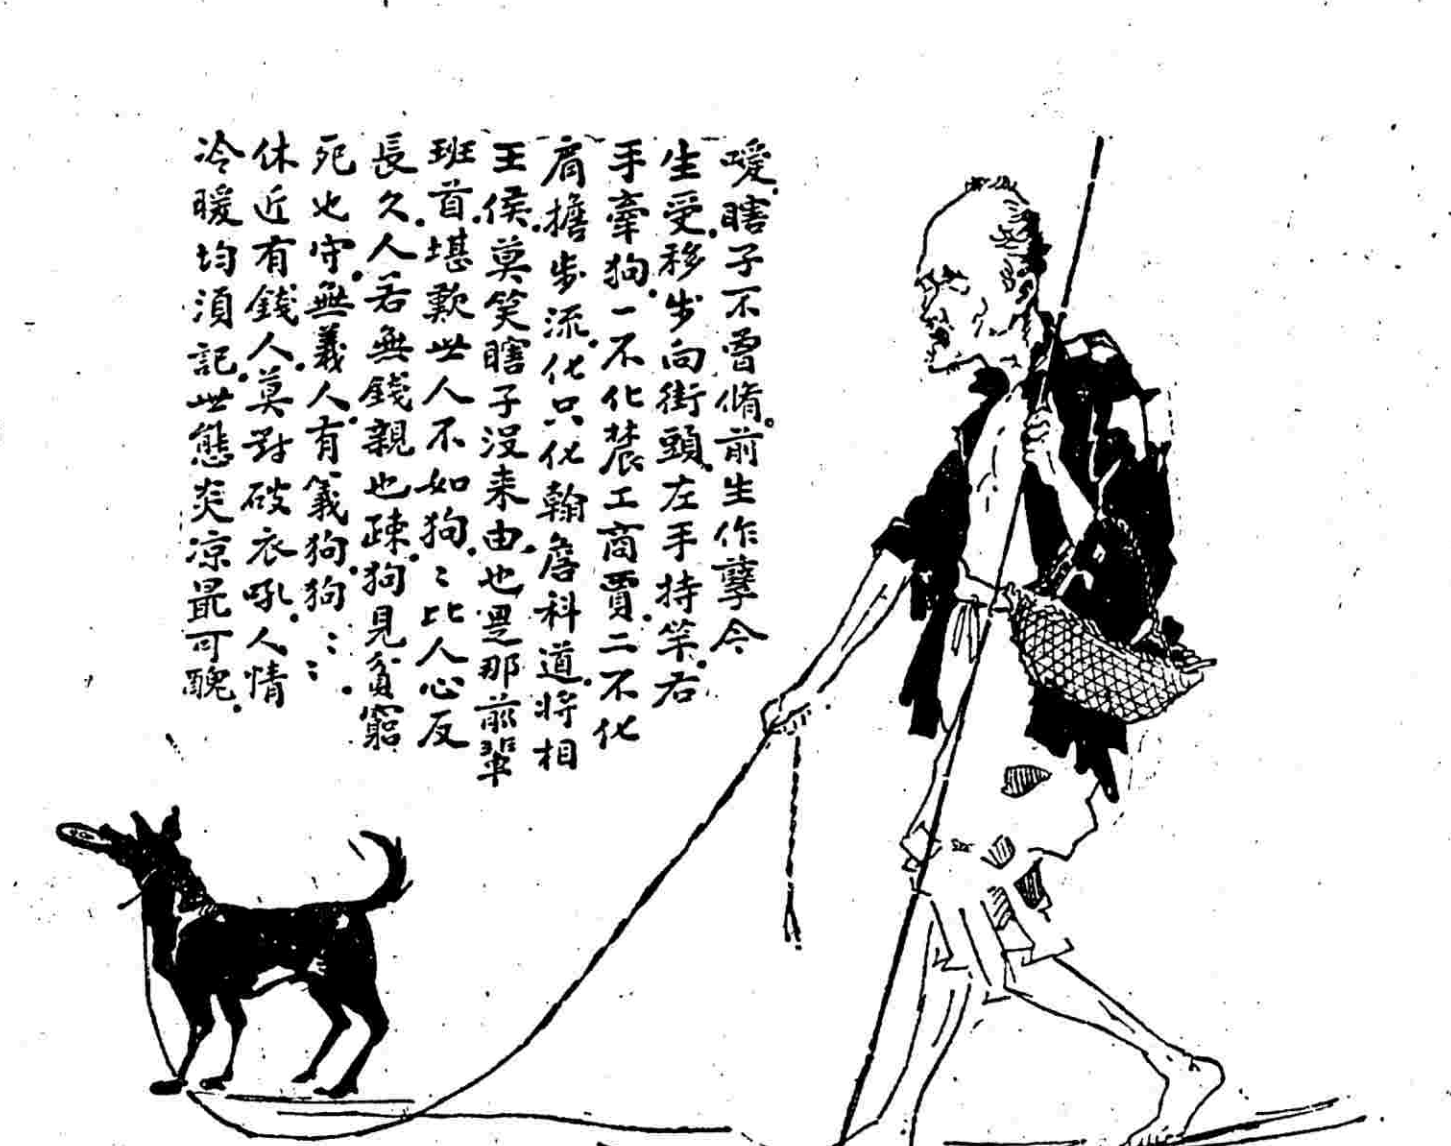 嗳瞎子不曾脩前生作孽今
生受移步向街頭左手持竿右
手牽狗一不化農工商賈二不化
肩擔步流化只化翰詹科道將相
王侯莫笑瞎子没来由也是那前輩
班首堪歎世人不如狗〻比人心反
長久人若無錢親也疎狗見貧窮
死也守無義人有義狗狗〻〻
休近有錢人莫對破衣吼人情
冷暖均須記世態炎凉最可醜